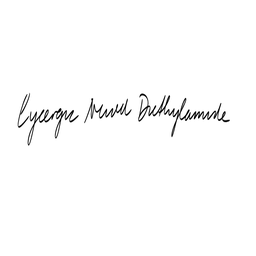 Lycergic Acid Diethylamide